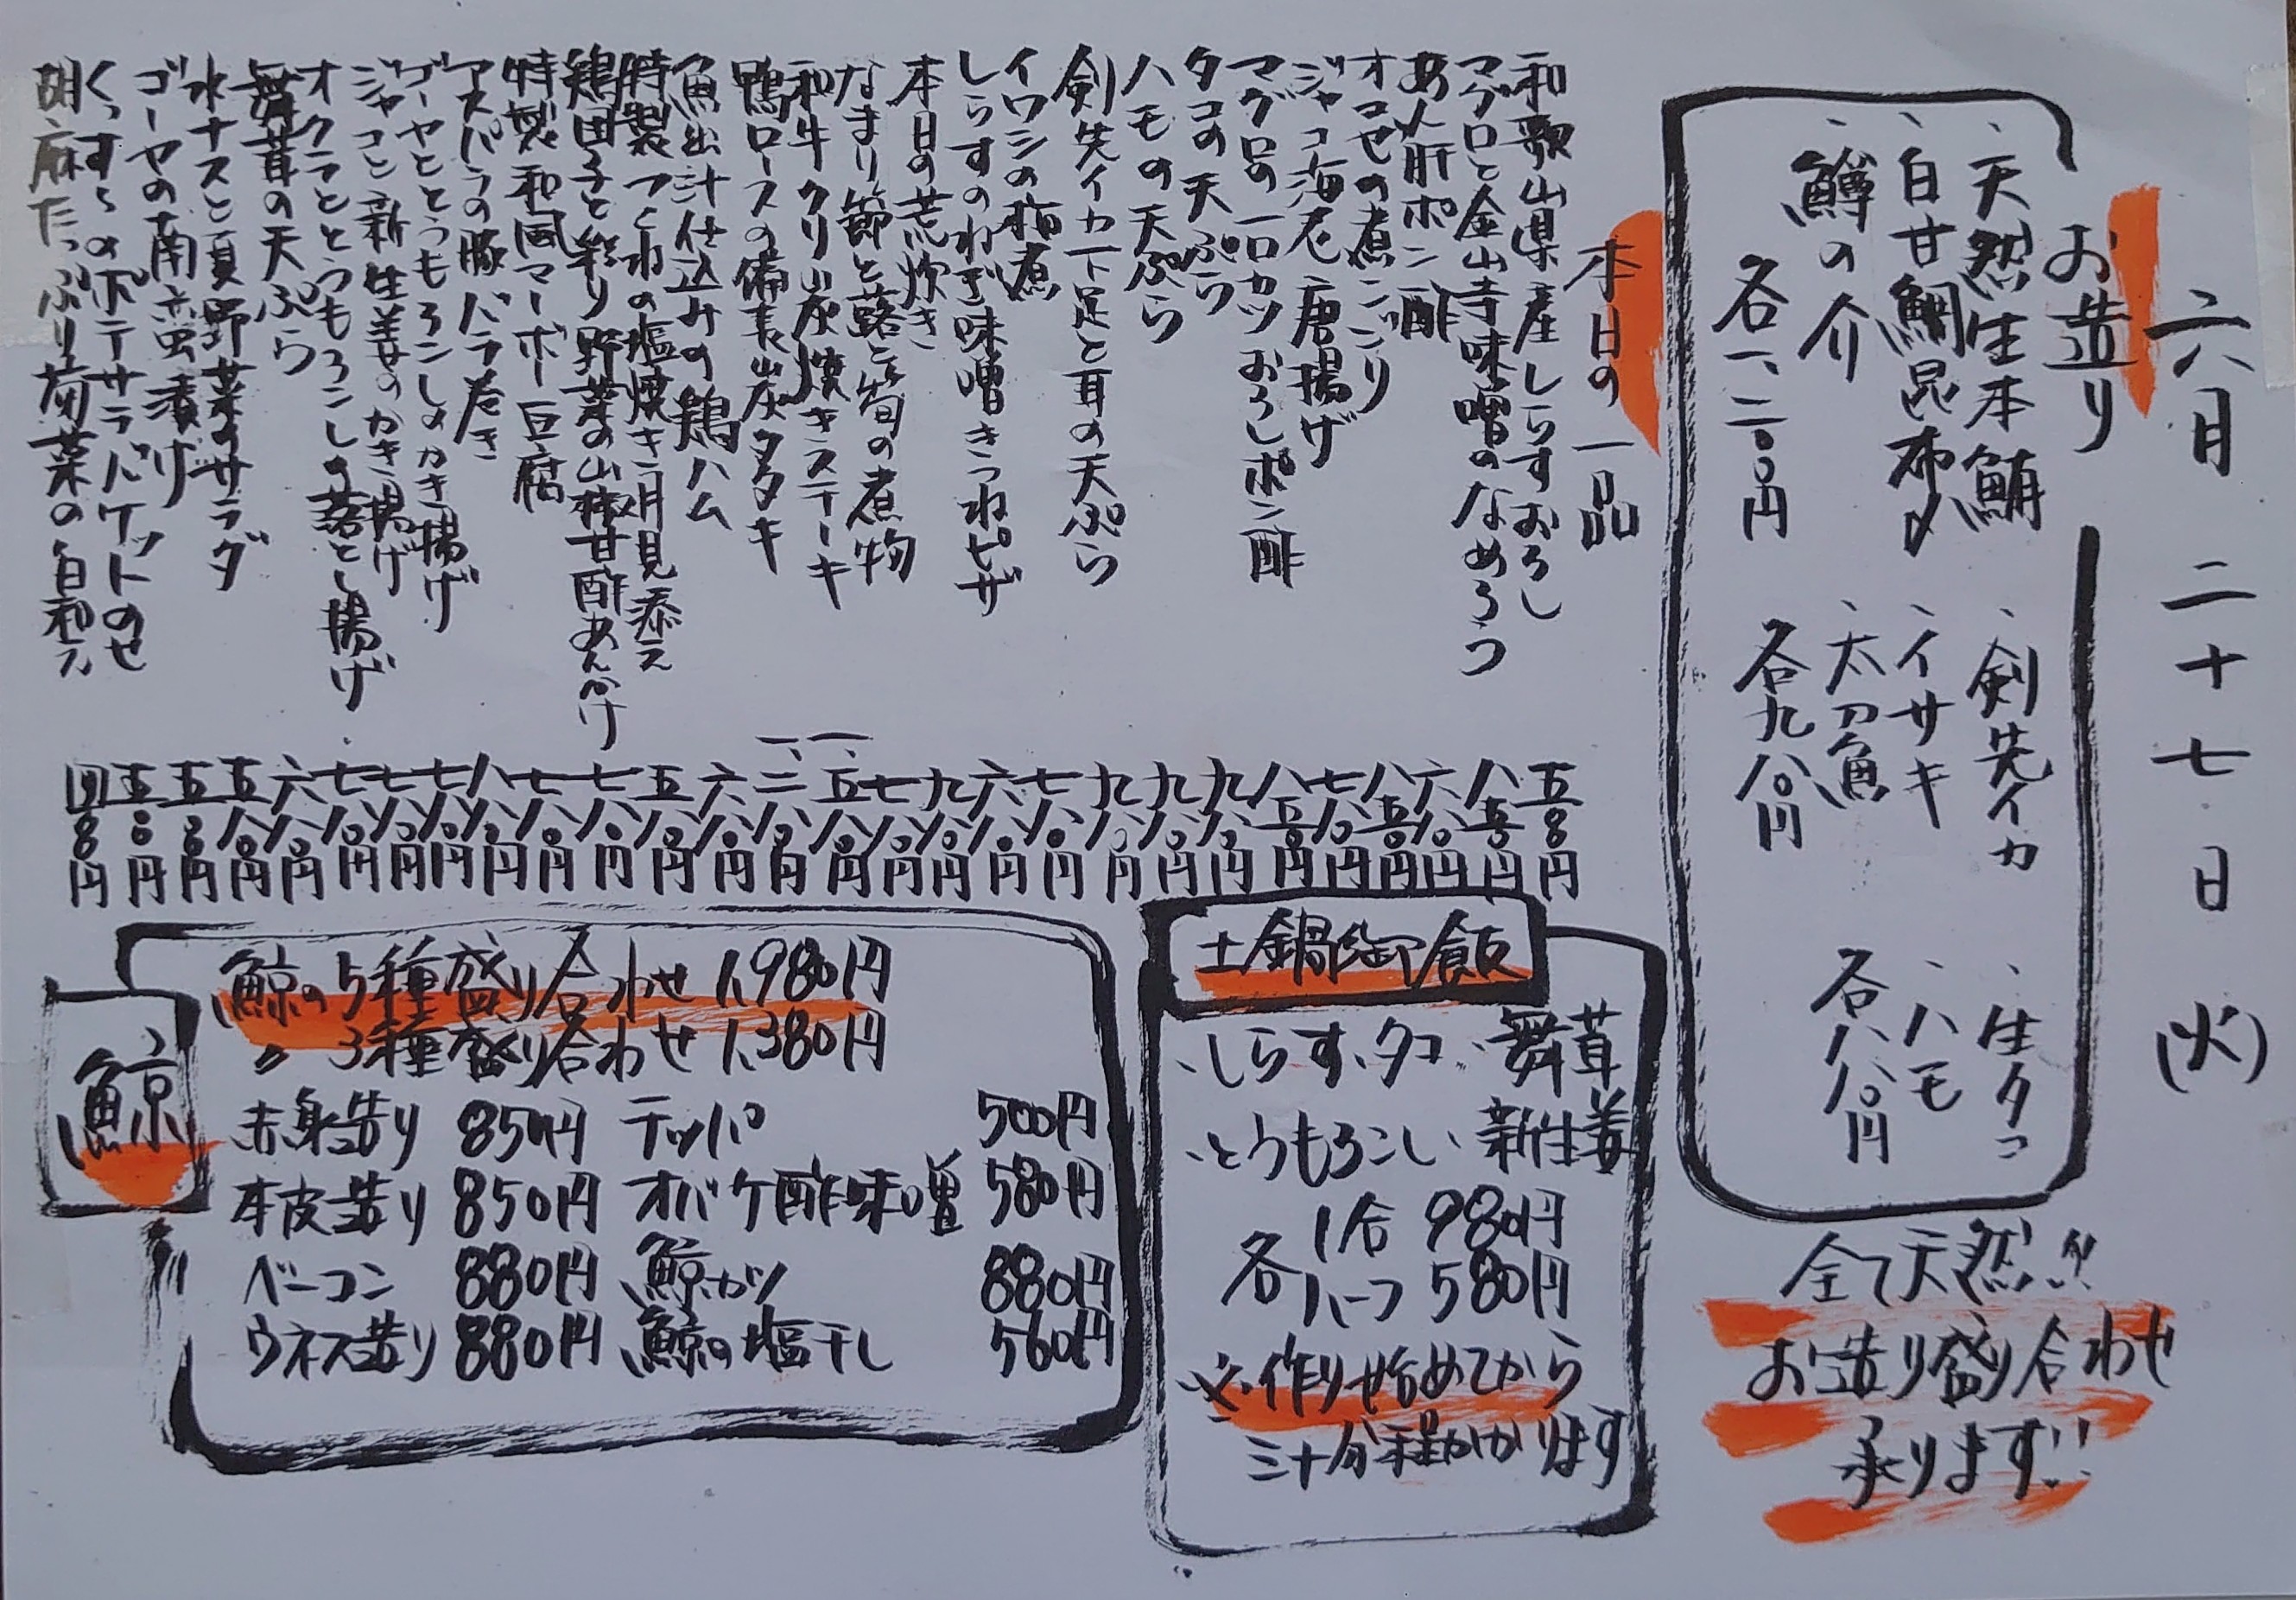 六月二十七日(火)
お造り
、天然生本鮪
、白甘鯛昆布〆
、鱒の介
各一、二〇〇円
、剣先イカ
、イサキ
、太刀魚
各九八〇円
、生タコ
、ハモ
各八八〇円
全て天然!!
お造り盛り合わせ
承ります!!
本日の一品
和歌山県産しらすおろし 五八〇円
マグロと金山寺味噌のなめろう 八五〇円
あん肝ポン酢 六八〇円
オコゼの煮こごり 八五〇円
ジャコ海老唐揚げ 七八〇円
マグロの一口カツおろしポン酢 八五〇円
タコの天ぷら 九八〇円
ハモの天ぷら 九八〇円
剣先イカ下足と耳の天ぷら 九八〇円
イワシの梅煮 七八〇円
しらすのねぎ味噌きつねピザ 六八〇円
本日の荒炊き 九八〇円
なまり節と蕗と筍の煮物 七八〇円
和牛クリ炭焼きステーキ 一、五八〇円
鴨ロースの備長炭タタキ 一、二八〇円
魚出汁仕込みの鶏ハム 六八〇円
特製つくねの塩焼き月見添え 五八〇円
鶏団子と彩り野菜の山椒甘酢あんかけ 七八〇円
特製和風マーボー豆腐 七八〇円
アスパラの豚バラ巻き 八八〇円
ゴーヤととうもろこしのかき揚げ 七八〇円
ジャコと新生姜のかき揚げ 七八〇円
オクラととうもろこしの落とし揚げ 七八〇円
舞茸の天ぷら 六八〇円
水ナスと夏野菜のサラダ 五八〇円
ゴーヤの南蛮漬け 五五〇円
くっすぅのポテサラバケットのせ 五五〇円
胡麻たっぷり葡菜の白和え 四八〇円
土鍋御飯
、しらす、タコ、舞茸
、とうもろこし、新生姜
各 1合 980円
ハーフ 580円
※作り始めてから
三十分程かかります
鯨
鯨の5種盛り合わせ 1,980円
〃 3種盛り合わせ 1,380円
赤身造り 850円 テッパ 500円
本皮造り 850円 オバケ酢味噌 580円
ベーコン 880円 鯨カツ 880円
ウネス造り 880円 鯨の塩干し 560円